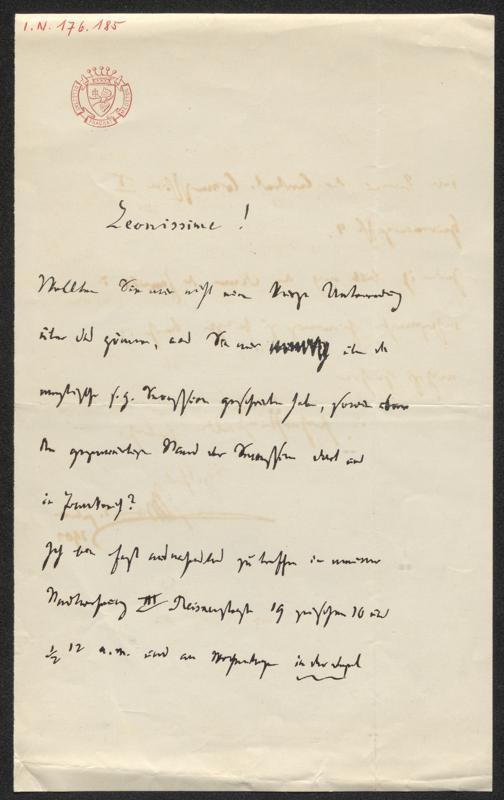 I.N. 176.185
Leonissime!
Wollten Sie mir nicht eine kurze Unterredung
über das gönnen, was Sie mir über die
englische s.g. Sezession geschrieben haben, sowie
den gegenwärtigen Stand der Sezession dort und
in Frankreich?
Ich bin fast zu treffen in meiner
Stadtwohnung III Reisnerstraße 19 zwischen 10 und
½ 12 a.m. und an Wochentagen in der Regel